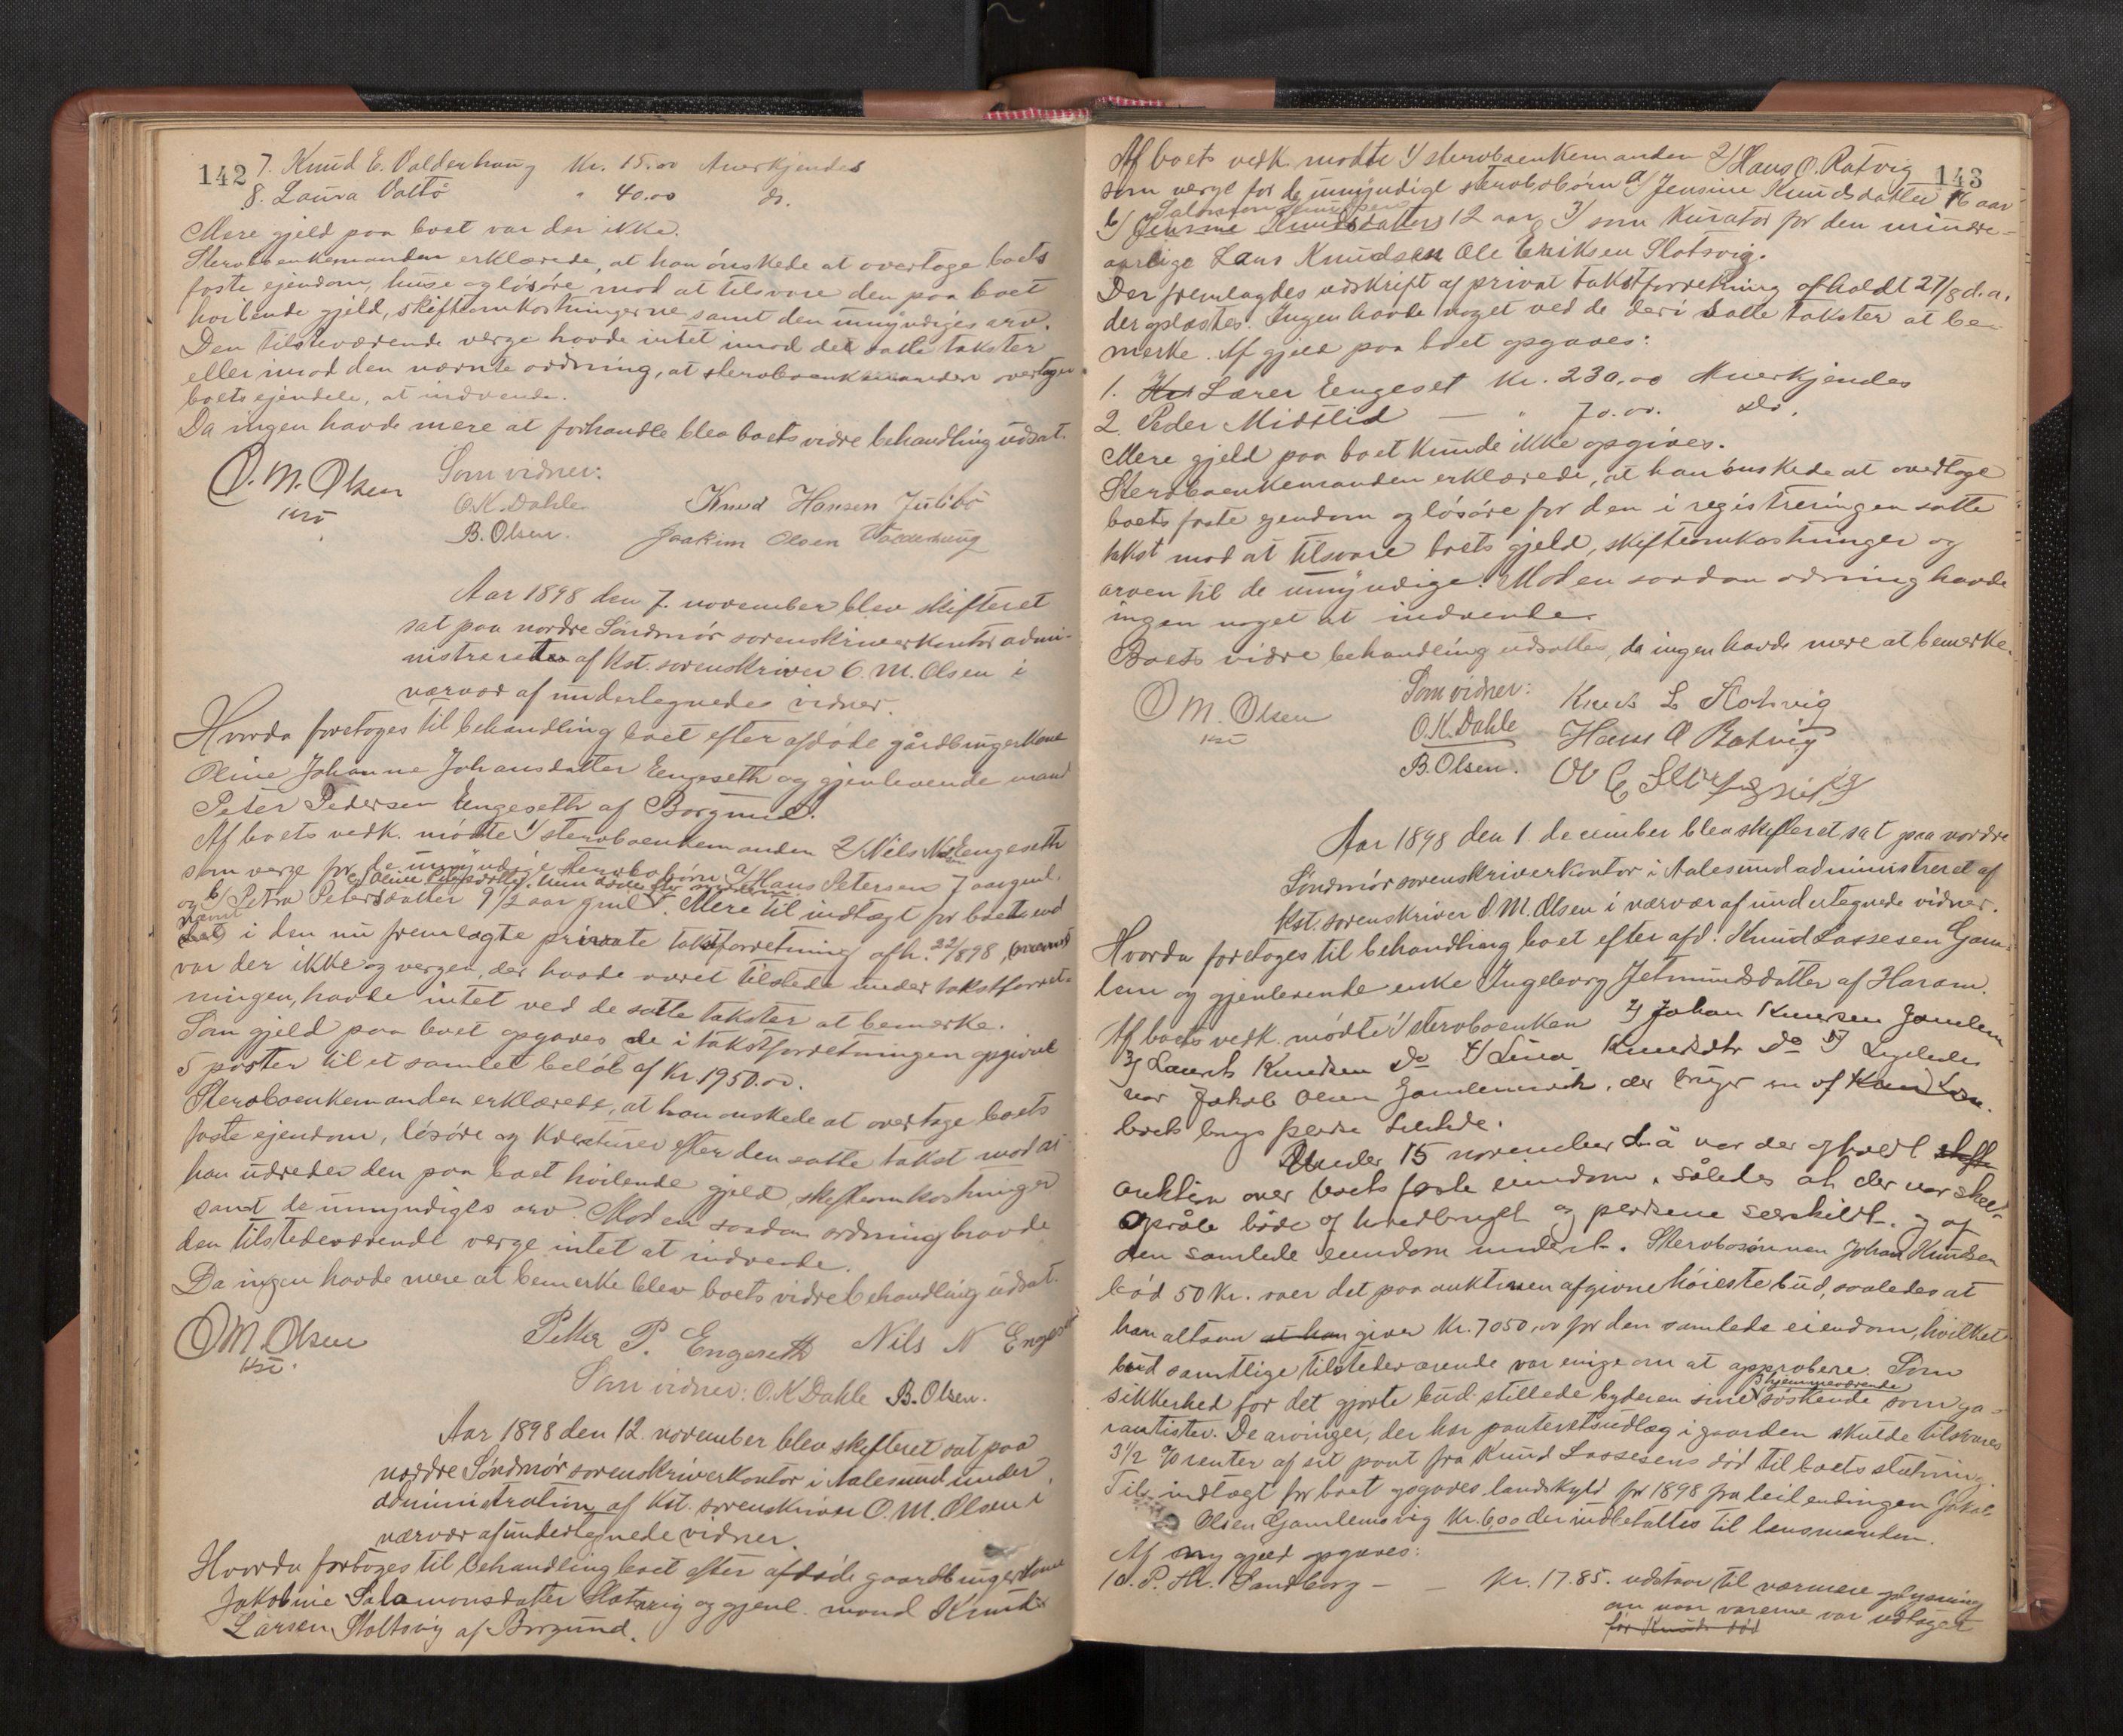 142
7. Knud E. Valderhaug Kr. 15.00 Anerkjendes
8. Laura Valtö " 40.00 do.
Mere gjeld paa boet var der ikke.
Stervboenkemanden erklærede, at han ønskede at overtage boets
faste ejendom, huse og løsøre mod at tilsvare den paa boet
hvilende gjeld, skifteomkostningerne samt den umyndiges arv.
Den tilstedeværende verge havde intet imod de satte takster
eller imod den nævnte ordning, at stervboenkemanden overtager
boets ejendele, at indvende.
Da ingen havde mere at forhandle blev boets vidre behandling udsat.
O. M. Olsen Som vidner:
kst O. K. Dahle Knud Hansen Julibø
B. Olsen. Joakim Olsen Valderhaug
Aar 1898 den 7. november blev skifteret
sat paa nordre Søndmør sorenskriverkontor admi-
nistreret af kst. sorenskriver O. M. Olsen i
nærvær af undertegnede vidner.
Hvorda foretoges til behandling boet efter afdøde gårdbrugerkone
Oline Johanne Johansdatter Engeseth og gjenlevende mand
Peter Pedersen Engeseth af Borgund.
Af boets vedk. mødte 1/ stervboenkemanden 2/ Nils N. Engeseth
som verge for de umyndige stervbobørn a/ Hans Petersen 7 aar gml.
og b/ Petra Petersdatter 9 1/2 aar gml. Mere til indtægt for boet end
nævnt i den nu fremlagte private takstforretning afh. 22/8 98,
var der ikke og vergen, der havde været tilstede under takstforret-
ningen, havde intet ved de satte takster at bemærke.
Som gjeld paa boet opgaves de i takstforretningen opgivne
5 poster til et samlet beløb af Kr. 1950.00.
Stervboenkemanden erklærede, at han ønskede at overtage boets
faste ejendom, løsøre og kreaturer efter den satte takst mod at
han udreder den paa boet hvilende gjeld, skifteomkostninger
samt de umyndiges arv. Mod en saadan ordning havde
den tilstedeværende verge intet at indvende.
Da ingen havde mere at bemerke blev boets vidre behandling udsat.
O M. Olsen Petter P. Engeseth Nils N Engeseth
kst. Som vidner: O. K. Dahle B. Olsen.
Aar 1898 den 12. november blev skifteret sat paa
nordre Søndmør sorenskriverkontor i Aalesund under
administration af kst. sorenskriver O. M. Olsen i
nærvær af undertegnede vidner.
Hvorda foretoges til behandling boet efter afdøde gaardbrugerkone
Jakobine Salamonsdatter Slotsvig og gjenl. mand Knud
Larsen Slottsvig af Borgund.
143
Af boets vedk. mødte 1/ stervboenkemanden 2/ Hans O. Ratvig
som verge for de umyndige stervbobørn a/ Jensine Knudsdatter 16 aar
Salamon Knudsen
b/ Jensine Knudsdatter 12 aar, 3/ som kurator for den mindre-
aarlige Lars Knudsen Ole Eriksen Slotsvig.
Der fremlagdes udskrift af privat takstforretning afholdt 27/8 d. a.
der oplæstes. Ingen havde noget ved de deri satte takster at be-
merke. Af gjeld paa boet opgaves:
1. Lærer Engeset Kr. 230,00 Anerkjendes
2. Peder Midtlid — " 70.00. do.
Mere gjeld paa boet kunde ikke opgives.
Stervboenkemanden erklærede, at han ønskede at overtage
boets faste ejendom og løsøre for den i registreringen satte
takst mod at tilsvare boets gjeld, skifteomkostninger og
arven til de umyndige. Mod en saadan ordning havde
ingen noget at indvende.
Boets vidre behandling udsattes, da ingen havde mere at bemerke.
O M. Olsen Som vidner: Knud L Slotsvig
kst O. K. Dahle Hans O Ratvig
B. Olsen.
Aar 1898 den 1. december blev skifteret sat paa nordre
Søndmør sorenskriverkontor i Aalesund administreret af
kst. sorenskriver O. M. Olsen i nærvær af undertegnede vidner.
Hvorda foretoges til behandling boet efter afd. Knud Lassesen Gam-
lem og gjenlevende enke Ingeborg Jetmundsdatter af Haram.
Af boets vedk. mødte 1/ stervboenken 2/ Johan Knudsen Gamlem
3/ Laurits Knudsen do 4/ Lina Knudsdtr do 5/ Ligeledes
var Jakob Olsen Gamlemsvik, der bruger en af
boets brugs tilstede.
Under 15 november d å var der afholdt
auktion over boets faste eiendom, således at der var skeet
opråb både af hovedbruget og særskildt, og af
den samlede eiendom underet. Stervbosønnen Johan Knudsen
bød 50 Kr. over det paa auktionen afgivne høieste bud, saaledes at
han altsaa at han giver Kr. 7050,00 for den samlede eiendom, hvilket
bud samtlige tilstedeværende var enige om at approbere. Som
hjemmeværende
sikkerhed for det gjorte bud stillede byderen sine søskende som ga-
rantister. De arvinger, der har panteretsudlæg i gaarden skulde tilsvares
3 1/2 % renter af sit pant fra Knud Lassesens død til boets slutning.
Til indtægt for boet opgaves landskyld for 1898 fra leilendingen Jakob
Olsen Gamlemsvig Kr. 6,00 der indbetaltes til lensmanden.
Af ny gjeld opgaves:
10. P. Hr. Sandborg — — Kr. 17.85. udstaar til nærmere oplysning
om naar varerne var udtaget
før Knuds død